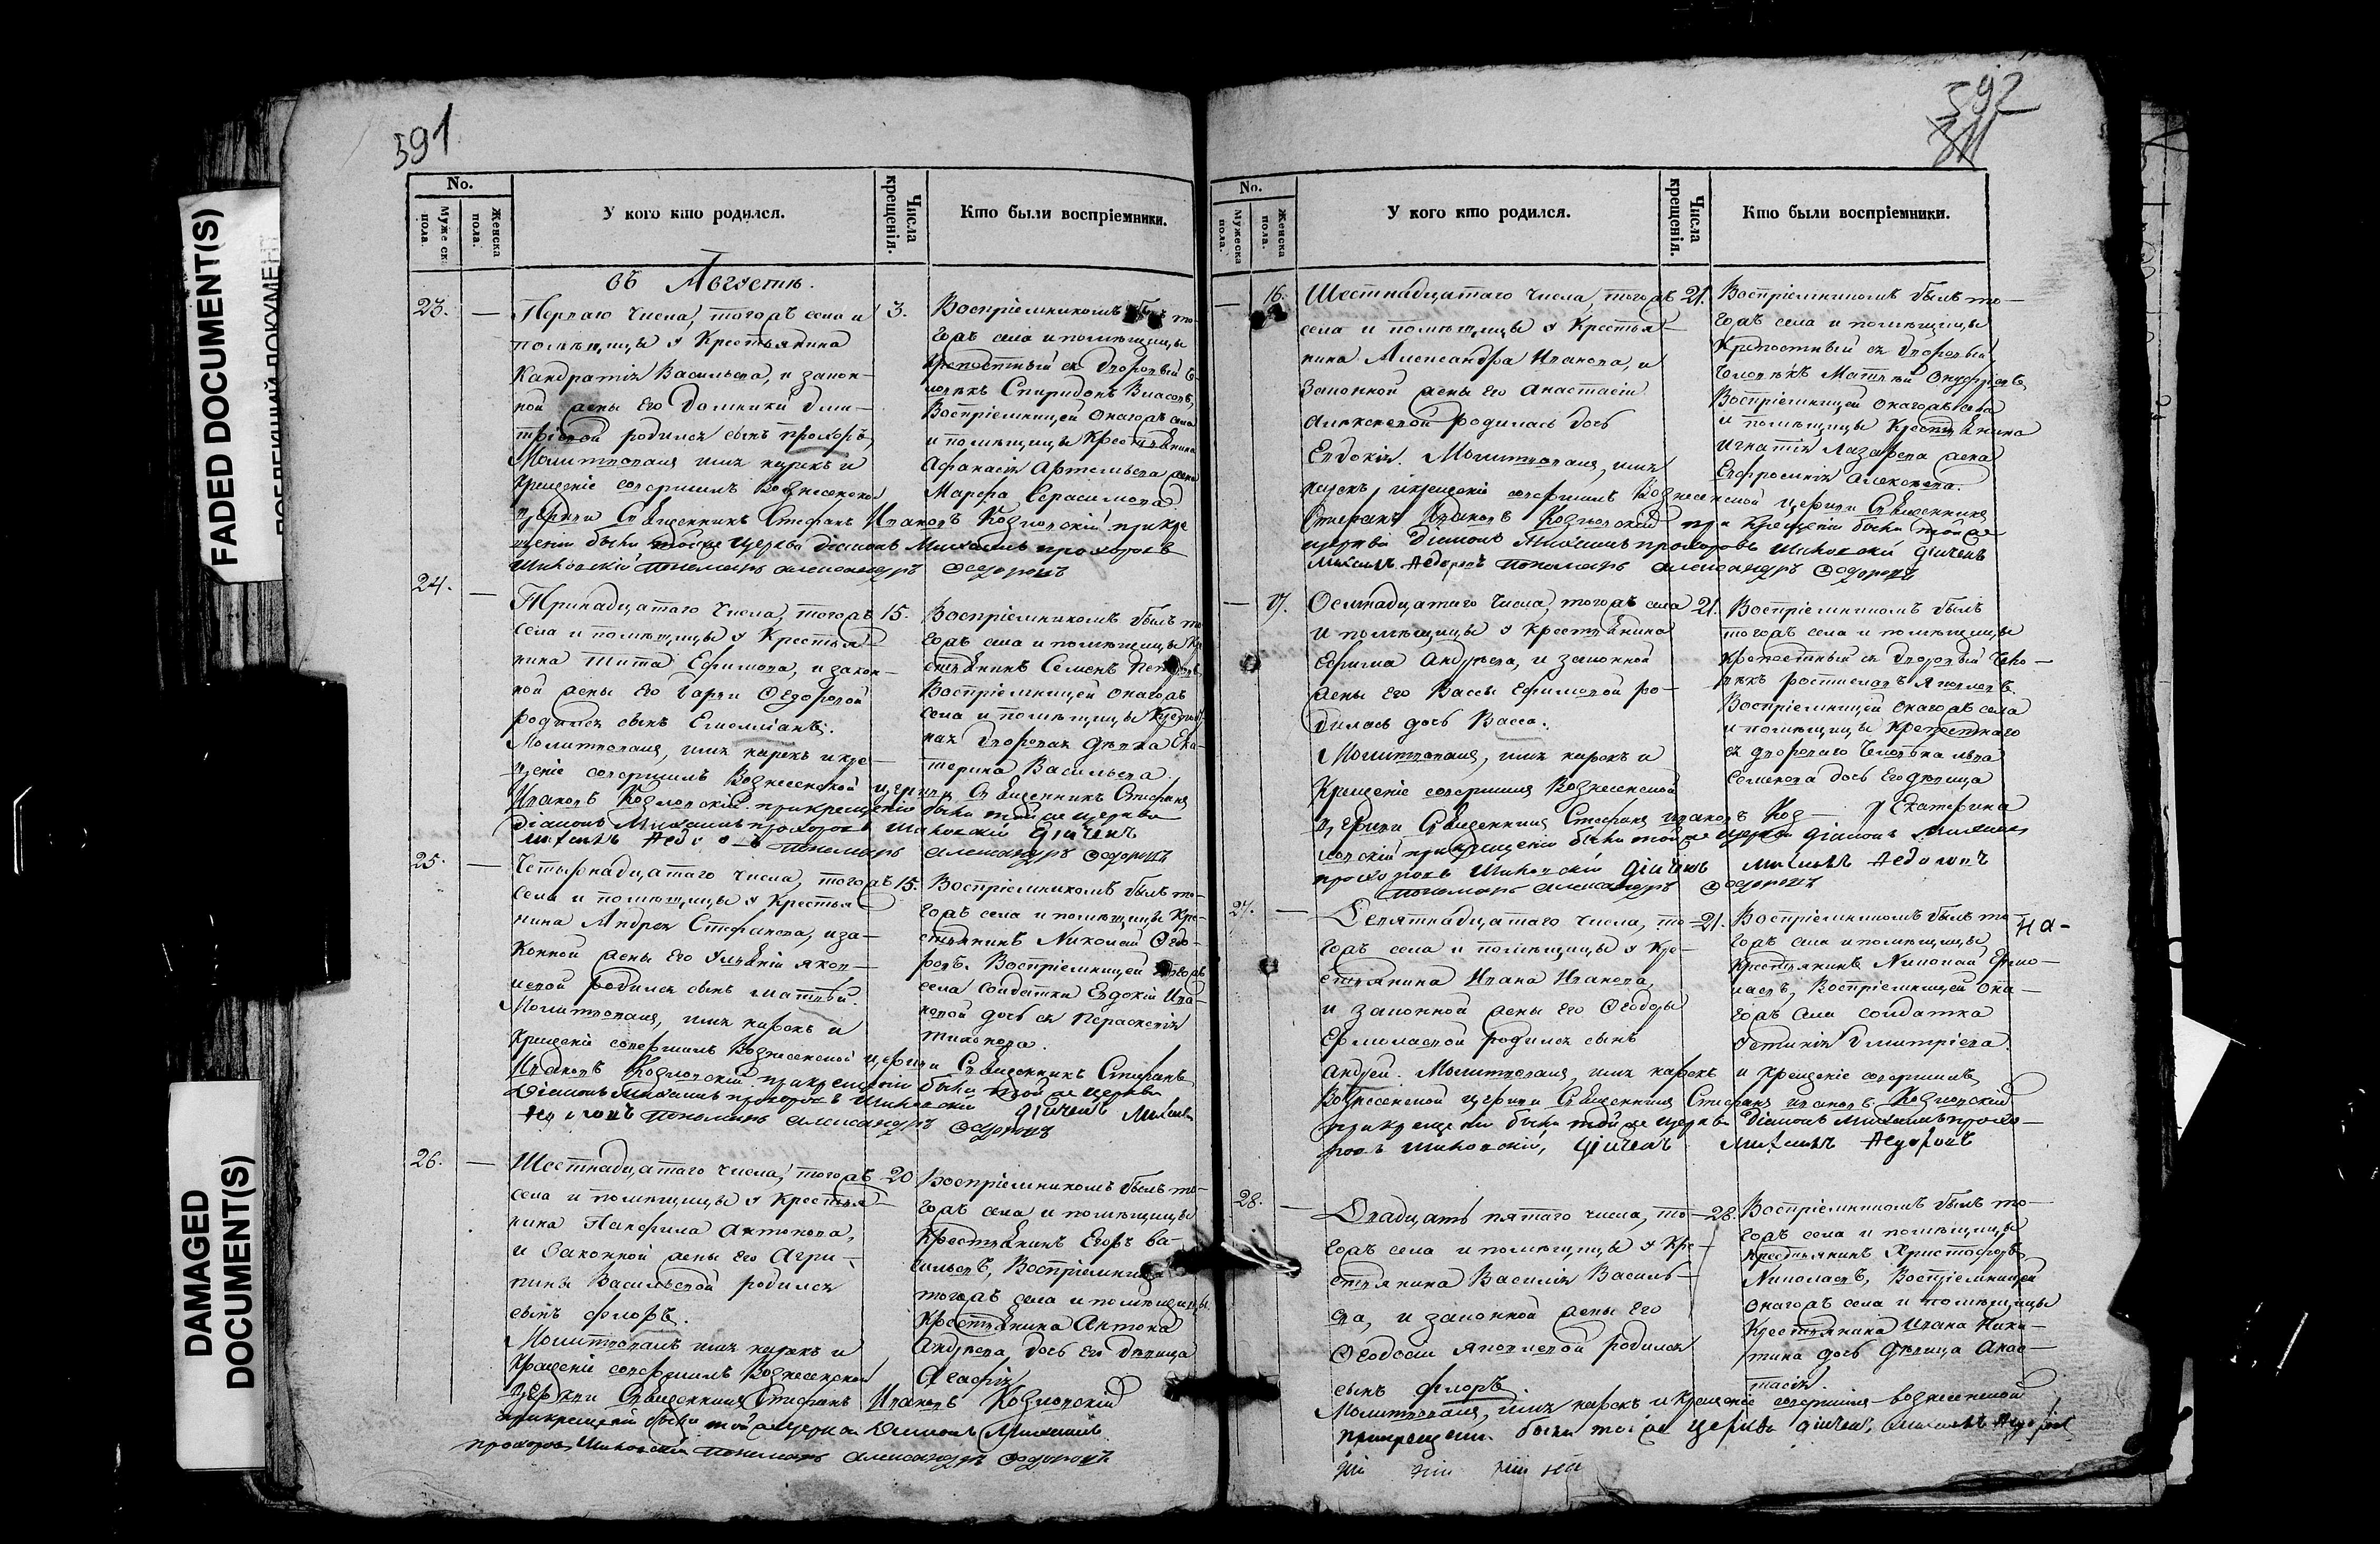 FADED DOCUMENT(S)
DAMAGED
DOCUMENT(S)
591
No.
Мужеска
пола.
Женска
пола.
У кого кто родился.
Числа
крещенія.
Кто были воспріемники.
въ Августѣ.
23. — Перваго числа, тогожъ села и
помѣщицы у Крестьянина
Кандратія Васильева, и закон-
ной жены его Домники Дми-
тріевой родился сынъ Прохоръ,
Молитвовалъ имя нарекъ и
Крещеніе совершилъ Вознесенской
церкви Священникъ Стефанъ Ивановъ Козловскій при кре
щеніи были тойже церкви діаконъ Михаилъ Прохоровъ
пономарь Александръ Ѳедоровъ
3. Воспріемникомъ былъ то-
гожъ села и помѣщицы
Крепостный дворовый че-
ловѣкъ Спиридонъ Власовъ,
Воспріемницей онагожъ села
и помѣщицы Крестьянина
Афанасія Артемьева жена
Марфа Герасимова
24. — Тринадцатаго числа, тогожъ
села и помѣщицы у Крестья-
нина Тита Ефимова, и закон-
ной жены его Варвары Ѳедоровой
родился сынъ Емеліанъ.
Молитвовалъ, имя нарекъ и кре-
щеніе совершилъ Вознесенской церкви Священникъ Стефанъ
Ивановъ Козловскій. при крещеніи были тойже церкви
діаконъ Михаилъ Прохоровъ дьячекъ
пономарь Александръ Ѳедоровъ
15. Воспріемникомъ былъ то
гожъ села и помѣщицы Кре
стьянинъ Семенъ
Воспріемницей онагожъ
села и помѣщицы
дворовая дѣвка Ека-
терина Васильева.
25. — Четырнадцатаго числа, тогожъ
села и помѣщицы у Крестья-
нина Андрея Стефанова, и за-
конной жены его Ульяніи Яков-
левой родился сынъ Матвѣй.
Молитвовалъ, имя нарекъ и
Крещеніе совершилъ Вознесенской церкви Священникъ Стефанъ
Ивановъ Козловскій. при крещеніи были тойже церкви
Діаконъ Михаилъ Прохоровъ дьячекъ
пономарь Александръ Ѳедоровъ
15. Воспріемникомъ былъ то-
гожъ села и помѣщицы Кре-
стьянинъ Николай Ѳедо-
ровъ. Воспріемницей тогожъ
села солдатки Евдокіи Ива-
новой дочь Параскевія
Тихонова.
26. — Шестнадцатаго числа, тогожъ
села и помѣщицы у Крестья-
нина Панфила Антонова,
и законной жены его Агри-
пины Васильевой родился
сынъ Флоръ.
Молитвовалъ имя нарекъ и
Крещеніе совершилъ Вознесенской
церкви Священникъ Стефанъ Ивановъ Козловскій
при крещеніи были тойже церкви Діаконъ Михаилъ
Прохоровъ пономарь Александръ Ѳедоровъ
20 Воспріемникомъ былъ то-
гожъ села и помѣщицы
Крестьянинъ Егоръ Ва-
сильевъ, Воспріемницей
тогожъ села и помѣщицы
Крестьянина Антона
Андреева дочь его дѣвица
Агафія
592
No.
Мужеска
пола.
Женска
пола.
У кого кто родился.
Числа
крещенія.
Кто были воспріемники.
— 16. Шестнадцатаго числа, тогожъ
села и помѣщицы у Крестья-
нина Александра Иванова, и
Законной жены его Анастасіи
Алексеевой родилась дочь
Евдокія. Молитвовалъ, имя
нарекъ, и крещеніе совершилъ Вознесенской церкви Священникъ
Стефанъ Ивановъ Козловскій при крещеніи были тойже
церкви Діаконъ Михаилъ Прохоровъ дьячекъ
пономарь Александръ Ѳедоровъ
21. Воспріемникомъ былъ то-
гожъ села и помѣщицы
Крепостный дворовый
человѣкъ Матвѣй Онуфріевъ,
Воспріемницей онагожъ села
и помѣщицы Крестьянина
Игнатія Лазарева жена
Евфросинія Алексеева.
— 17. Осмнадцатаго числа, тогожъ села
и помѣщицы у Крестьянина
Ефима Андреева, и законной
жены его Вассы Ефимовой ро-
дилась дочь Васса.
Молитвовалъ, имя нарекъ и
Крещеніе совершилъ Вознесенской
церкви Священникъ Стефанъ Ивановъ Коз-
ловскій при крещеніи были тойже церкви діаконъ Михаилъ
Прохоровъ дьячекъ
пономарь Александръ Ѳедоровъ
21. Воспріемникомъ былъ
тогожъ села и помѣщицы
Крепостный дворовый чело-
вѣкъ Ростиславъ Яковлевъ.
Воспріемницей онагожъ села
и помѣщицы Крепостнаго
двороваго человѣка
Семенова дочь его дѣвица
Екатерина
27. — Девятнадцатаго числа, то-
гожъ села и помѣщицы у Кре-
стьянина Ивана Иванова,
и законной жены его Ѳеодоры
Ермолаевой родился сынъ
Андрей. Молитвовалъ, имя нарекъ и крещеніе совершилъ
Вознесенской церкви Священникъ Стефанъ Ивановъ Козловскій
при крещеніи были тойже церкви Діаконъ Михаилъ Прохо-
ровъ дьячекъ
21. Воспріемникомъ былъ то-
гожъ села и помѣщицы
Крестьянинъ Николай Ермо-
лаевъ, Воспріемницей она-
гожъ села солдатка
Устинія Дмитріева.
на-
28. — Двадцать пятаго числа, то-
гожъ села и помѣщицы у Кре-
стьянина Василія Василь-
ева, и законной жены его
Ѳеодосіи Яковлевой родился
сынъ Флоръ.
Молитвовалъ, имя нарекъ и Крещеніе совершилъ Вознесенской
При крещеніи были тойже церкви дьячекъ
28. Воспріемникомъ былъ то-
гожъ села и помѣщицы
Крестьянинъ Христофоръ
Николаевъ, Воспріемницей
онагожъ села и помѣщицы
Крестьянина Ивана Ники-
тина дочь дѣвица Анас-
тасія.